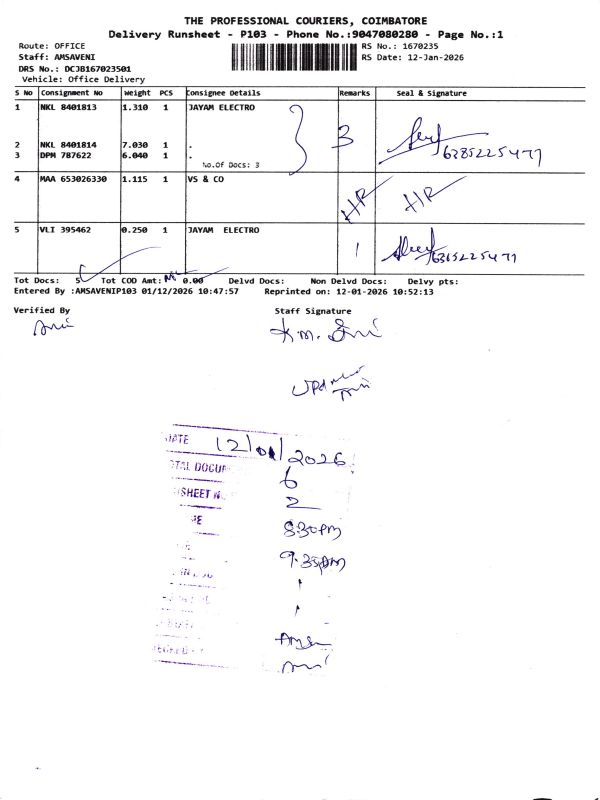 THE PROFESSIONAL COURIERS, COIMBATORE
Delivery Runsheet - P103 - Phone No.:9047080280 - Page No.:1
Route: OFFICE
RS No.: 1670235
Staff: AMSAVENI
RS Date: 12-Jan-2026
DRS No.: DCJB167023501
Vehicle: Office Delivery
S No Consignment No Weight PCS Consignee Details Remarks Seal & Signature
1 NKL 8401813 1.310 1 JAYAM ELECTRO
2 NKL 8401814 7.030 1 .
3 DPM 787622 6.040 1 .
3
No.Of Docs: 3
4 MAA 653026330 1.115 1 VS & CO
5 VLI 395462 0.250 1 JAYAM ELECTRO
1
Tot Docs: 5 Tot COD Amt: 0.00 Delvd Docs: Non Delvd Docs: Delvy pts:
Entered By :AMSAVENIP103 01/12/2026 10:47:57 Reprinted on: 12-01-2026 10:52:13
Verified By Staff Signature
DATE 12/01/2026
6
SHEET N 2
8:30pm
9.35pm